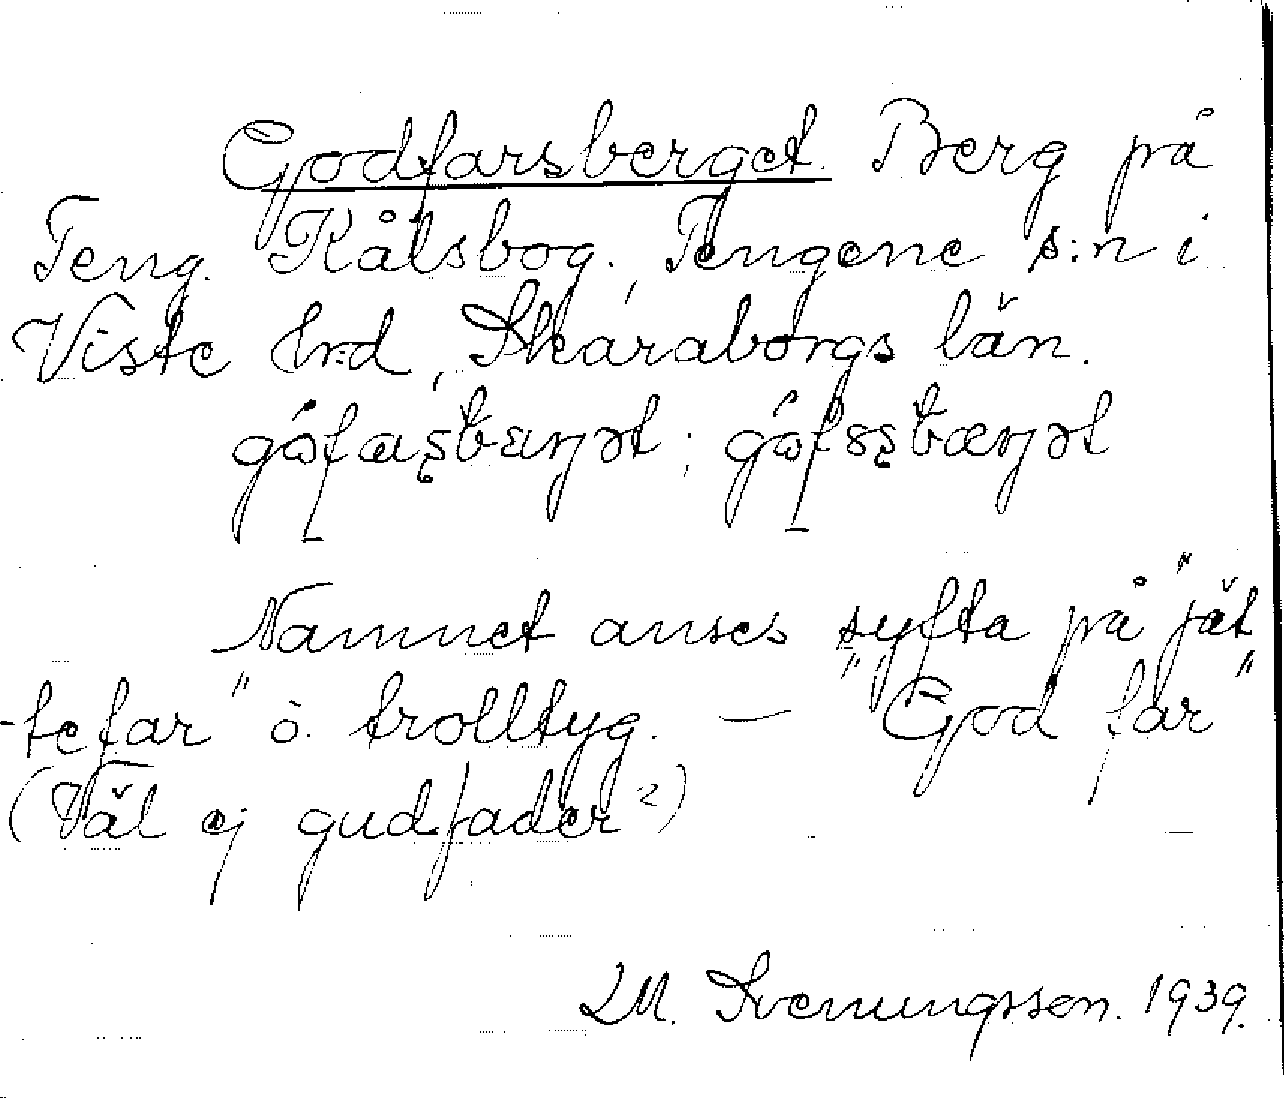 Godfarsberget. Berg på
Teng. Kålsbog., Tengene s:n i
Viste hrd, Skaraborgs län.
Namnet anses syfta på "jät
-tefar" o. trolltyg. — "God far"
(Väl ej gudfader?)
M. Svenungsson. 1939.